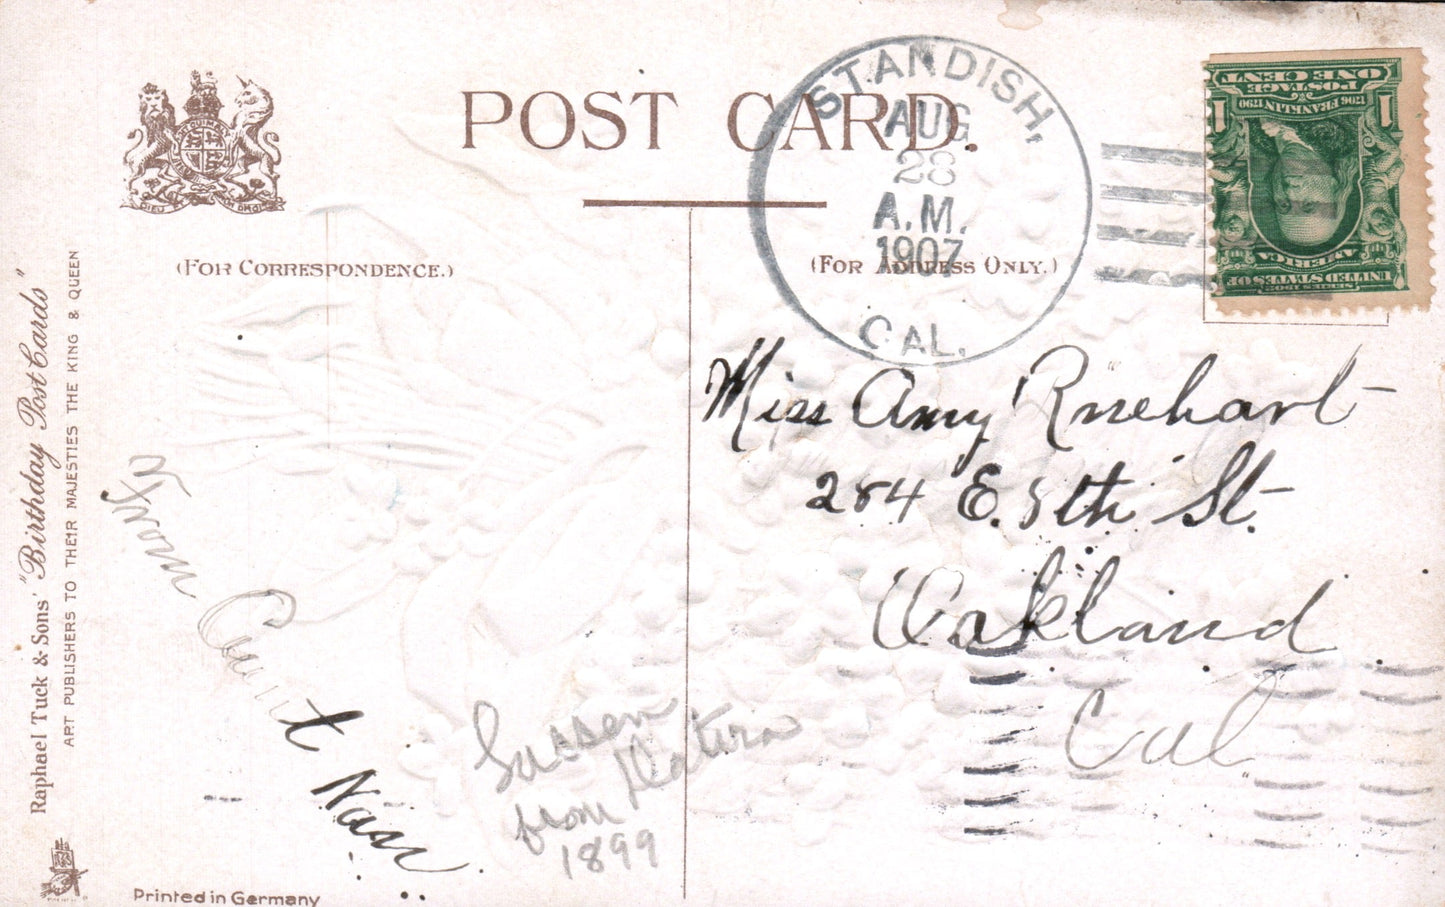 POST CARD.
(FOR CORRESPONDENCE.)
(FOR ADDRESS ONLY.)
STANDISH,
AUG
28
A.M.
1907
CAL.
POSTAGE
ONE CENT
1706 FRANKLIN 1790
1 1
SERIES 1902
UNITED STATES OF
AMERICA
Miss Amy Rinehart
284 E. 8th St.
Oakland
Cal
From Aunt Nan
from
1899
Raphael Tuck & Sons' "Birthday Post Cards"
ART PUBLISHERS TO THEIR MAJESTIES THE KING & QUEEN
DIEU ET MON DROIT
Printed in Germany